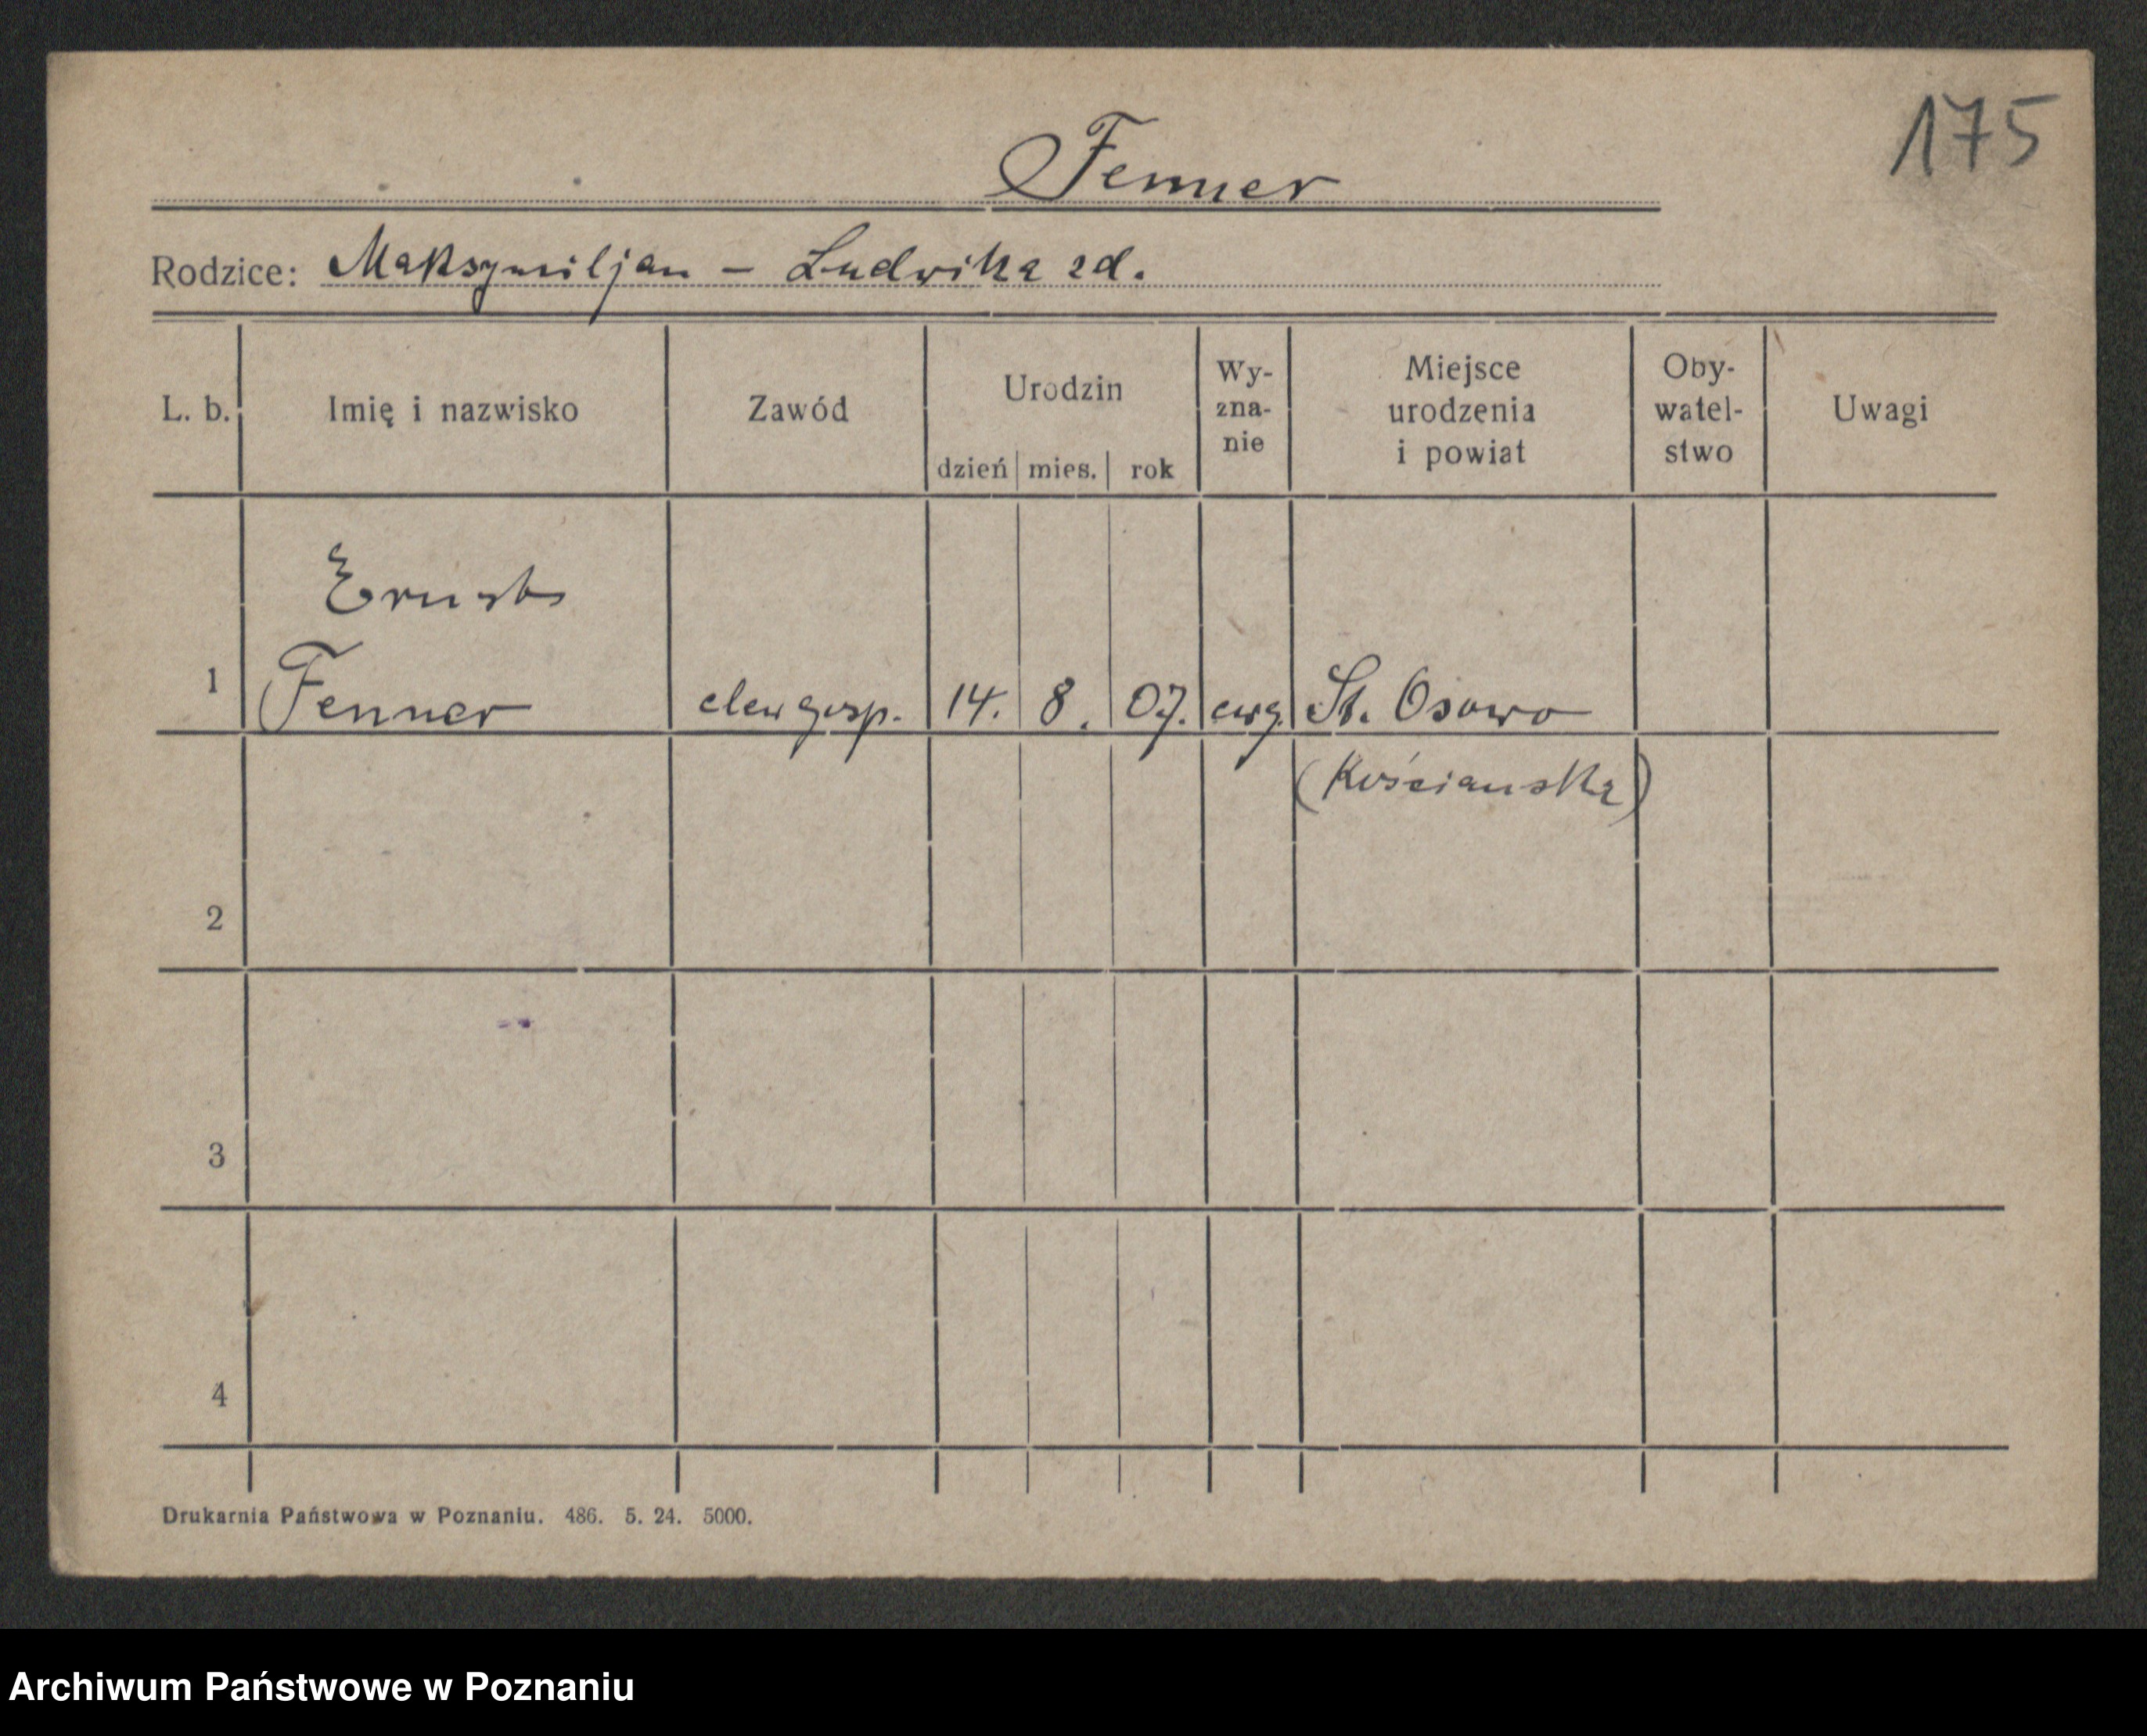 175
Fenner
Rodzice: Maksymiljan – Ludwika zd.
L. b. Imię i nazwisko Zawód Urodzin dzień mies. rok Wy-zna-nie Miejsce urodzenia i powiat Oby-watel-stwo Uwagi
Ernst
1 Fenner elew gosp. 14. 8. 07. ewg. St. Osowo
(Kościańska)
2
3
4
Drukarnia Państwowa w Poznaniu. 486. 5. 24. 5000.
Archiwum Państwowe w Poznaniu